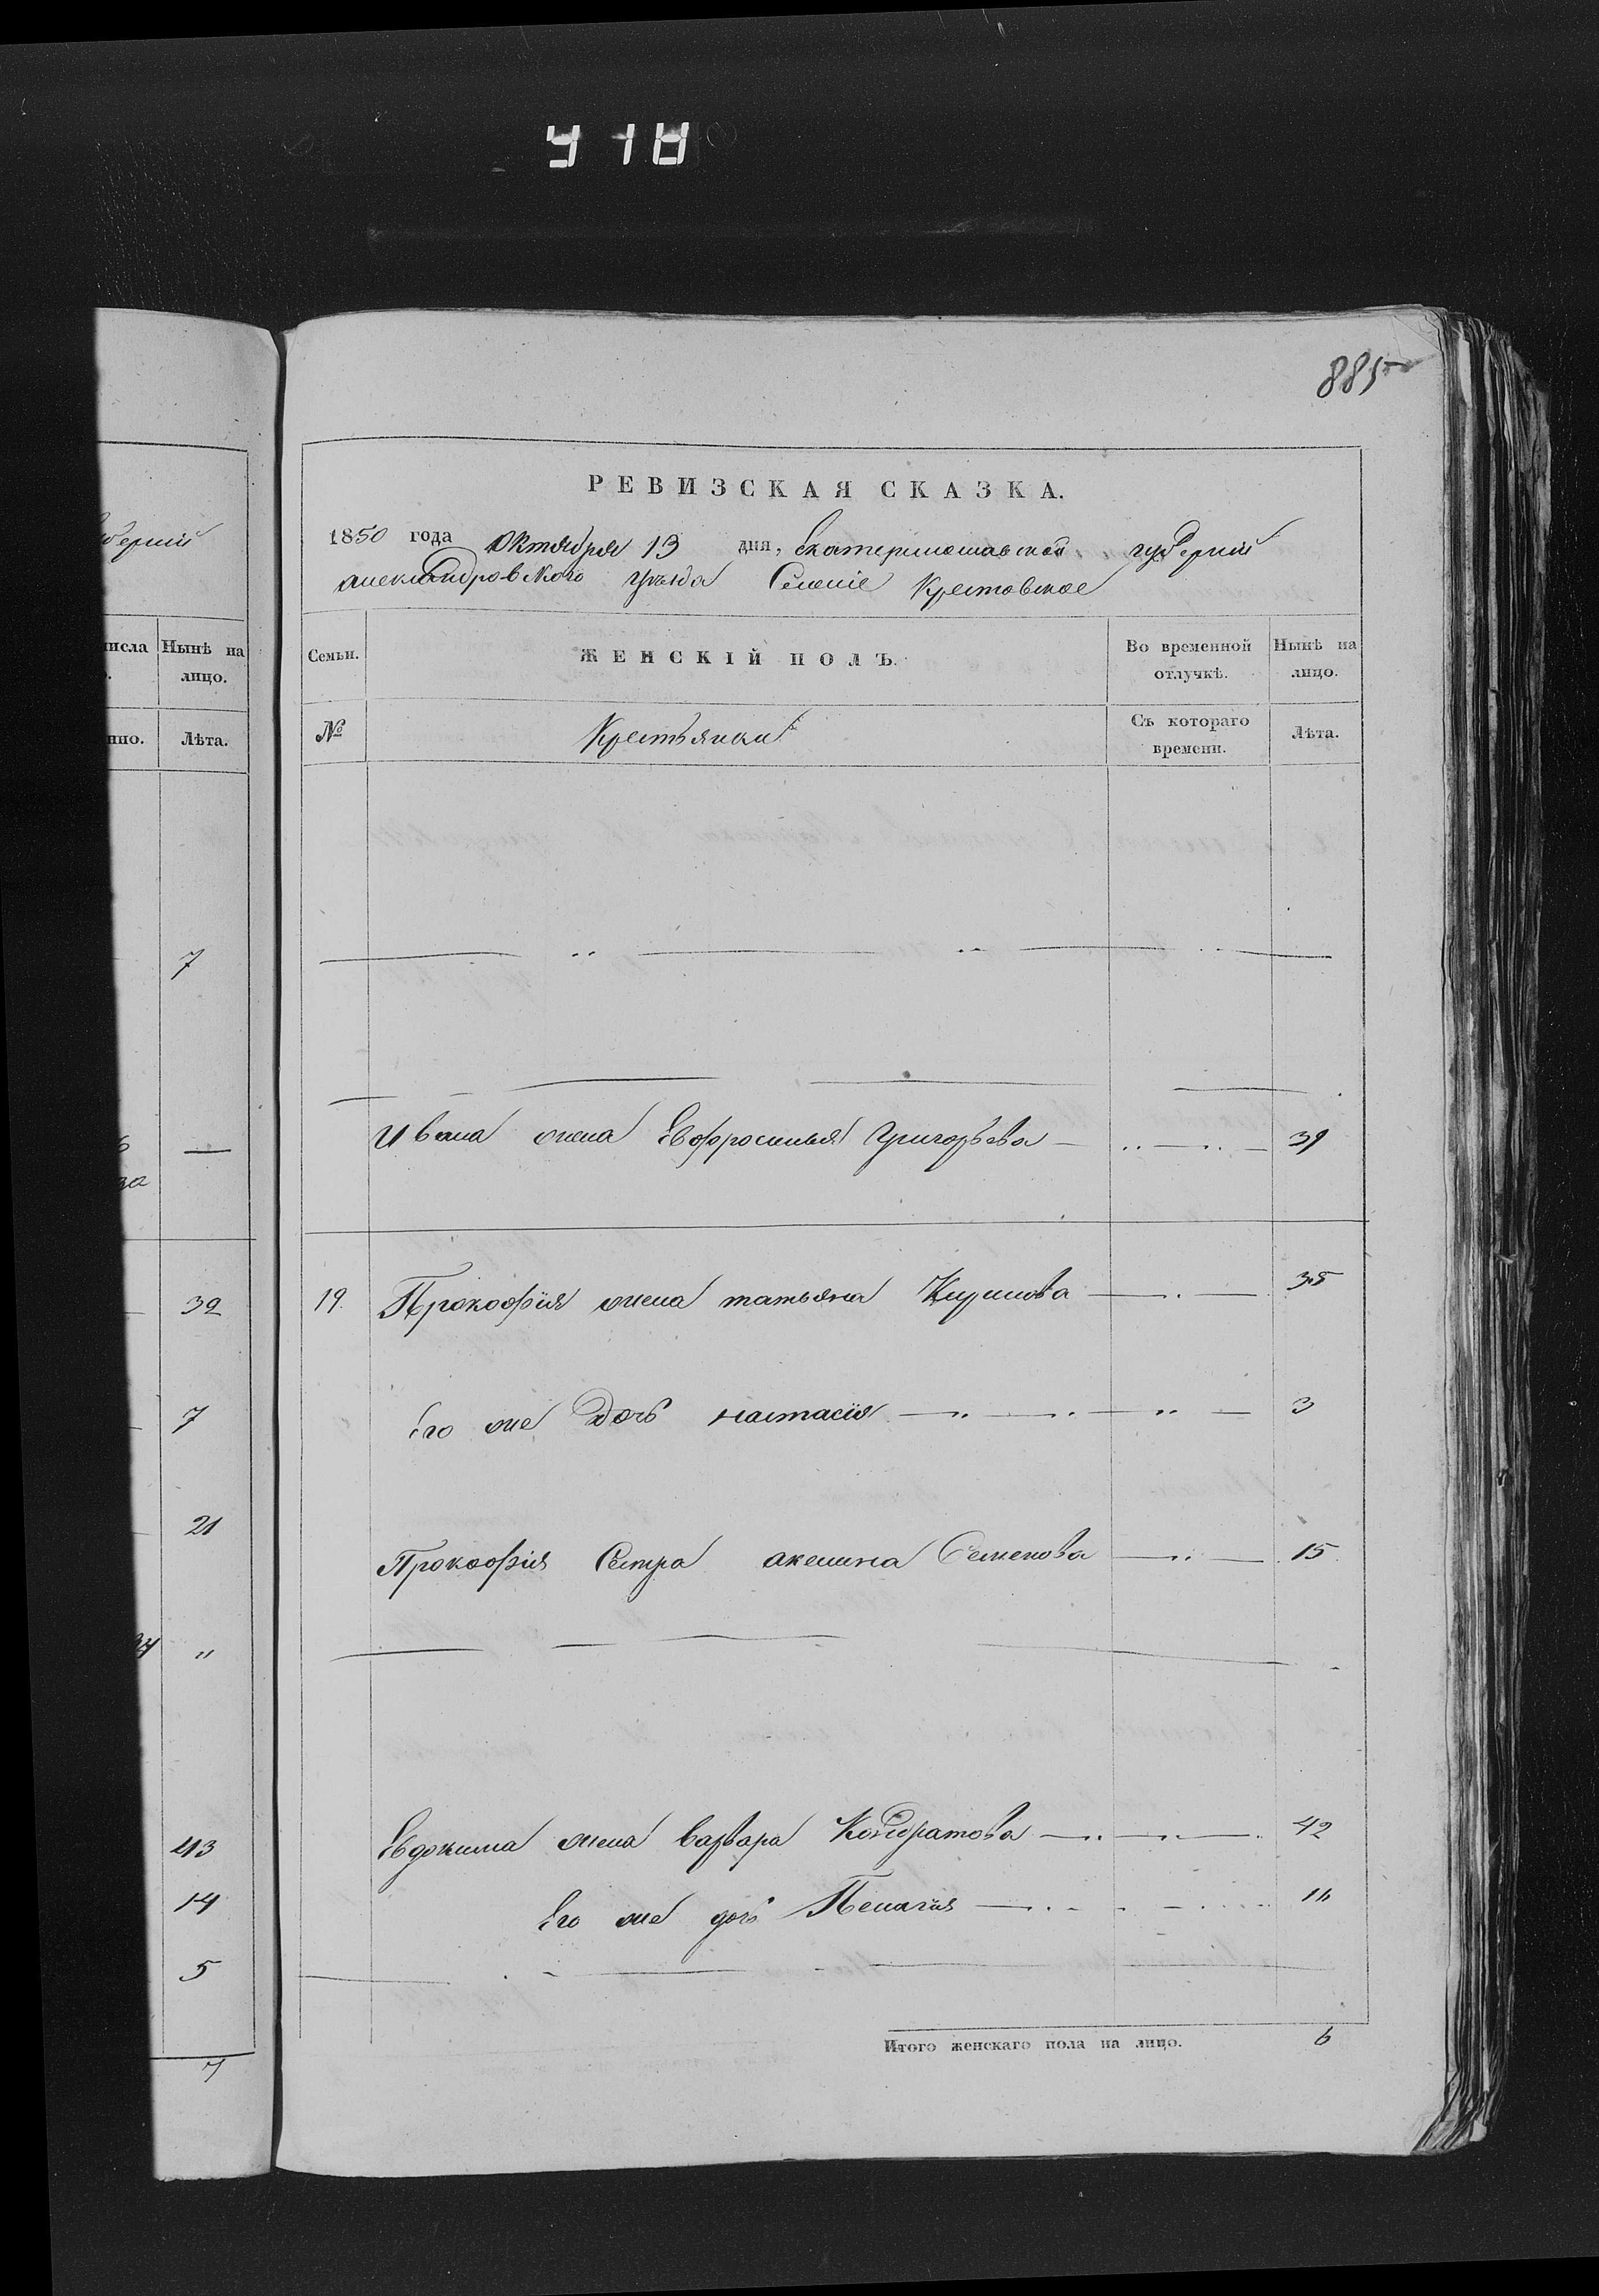 918
885
губернiи
числа
Нынѣ на
лицо.
Лѣта.
7
—
32
7
21
"
43
14
5
7
РЕВИЗСКАЯ СКАЗКА.
1850 года Октября 13 дня, Екатеринославской губернiи
александровского уѣзда Селенiе Крестовское
Семьи.
ЖЕНСКIЙ ПОЛЪ.
Во временной
отлучкѣ.
Нынѣ на
лицо.
№
Крестьянки
Съ котораго
времени.
Лѣта.
Ивана жена Евфросинья Григорьева 39
19. Прокофiя жена татьяна Кирилова 35
Его же дочь настасiя 3
Прокофiя Сестра акелина Семенова 15
Евдокима жена варвара Кондратова 42
Его же дочь Пелагiя 11
Итого женскаго пола на лицо. 6